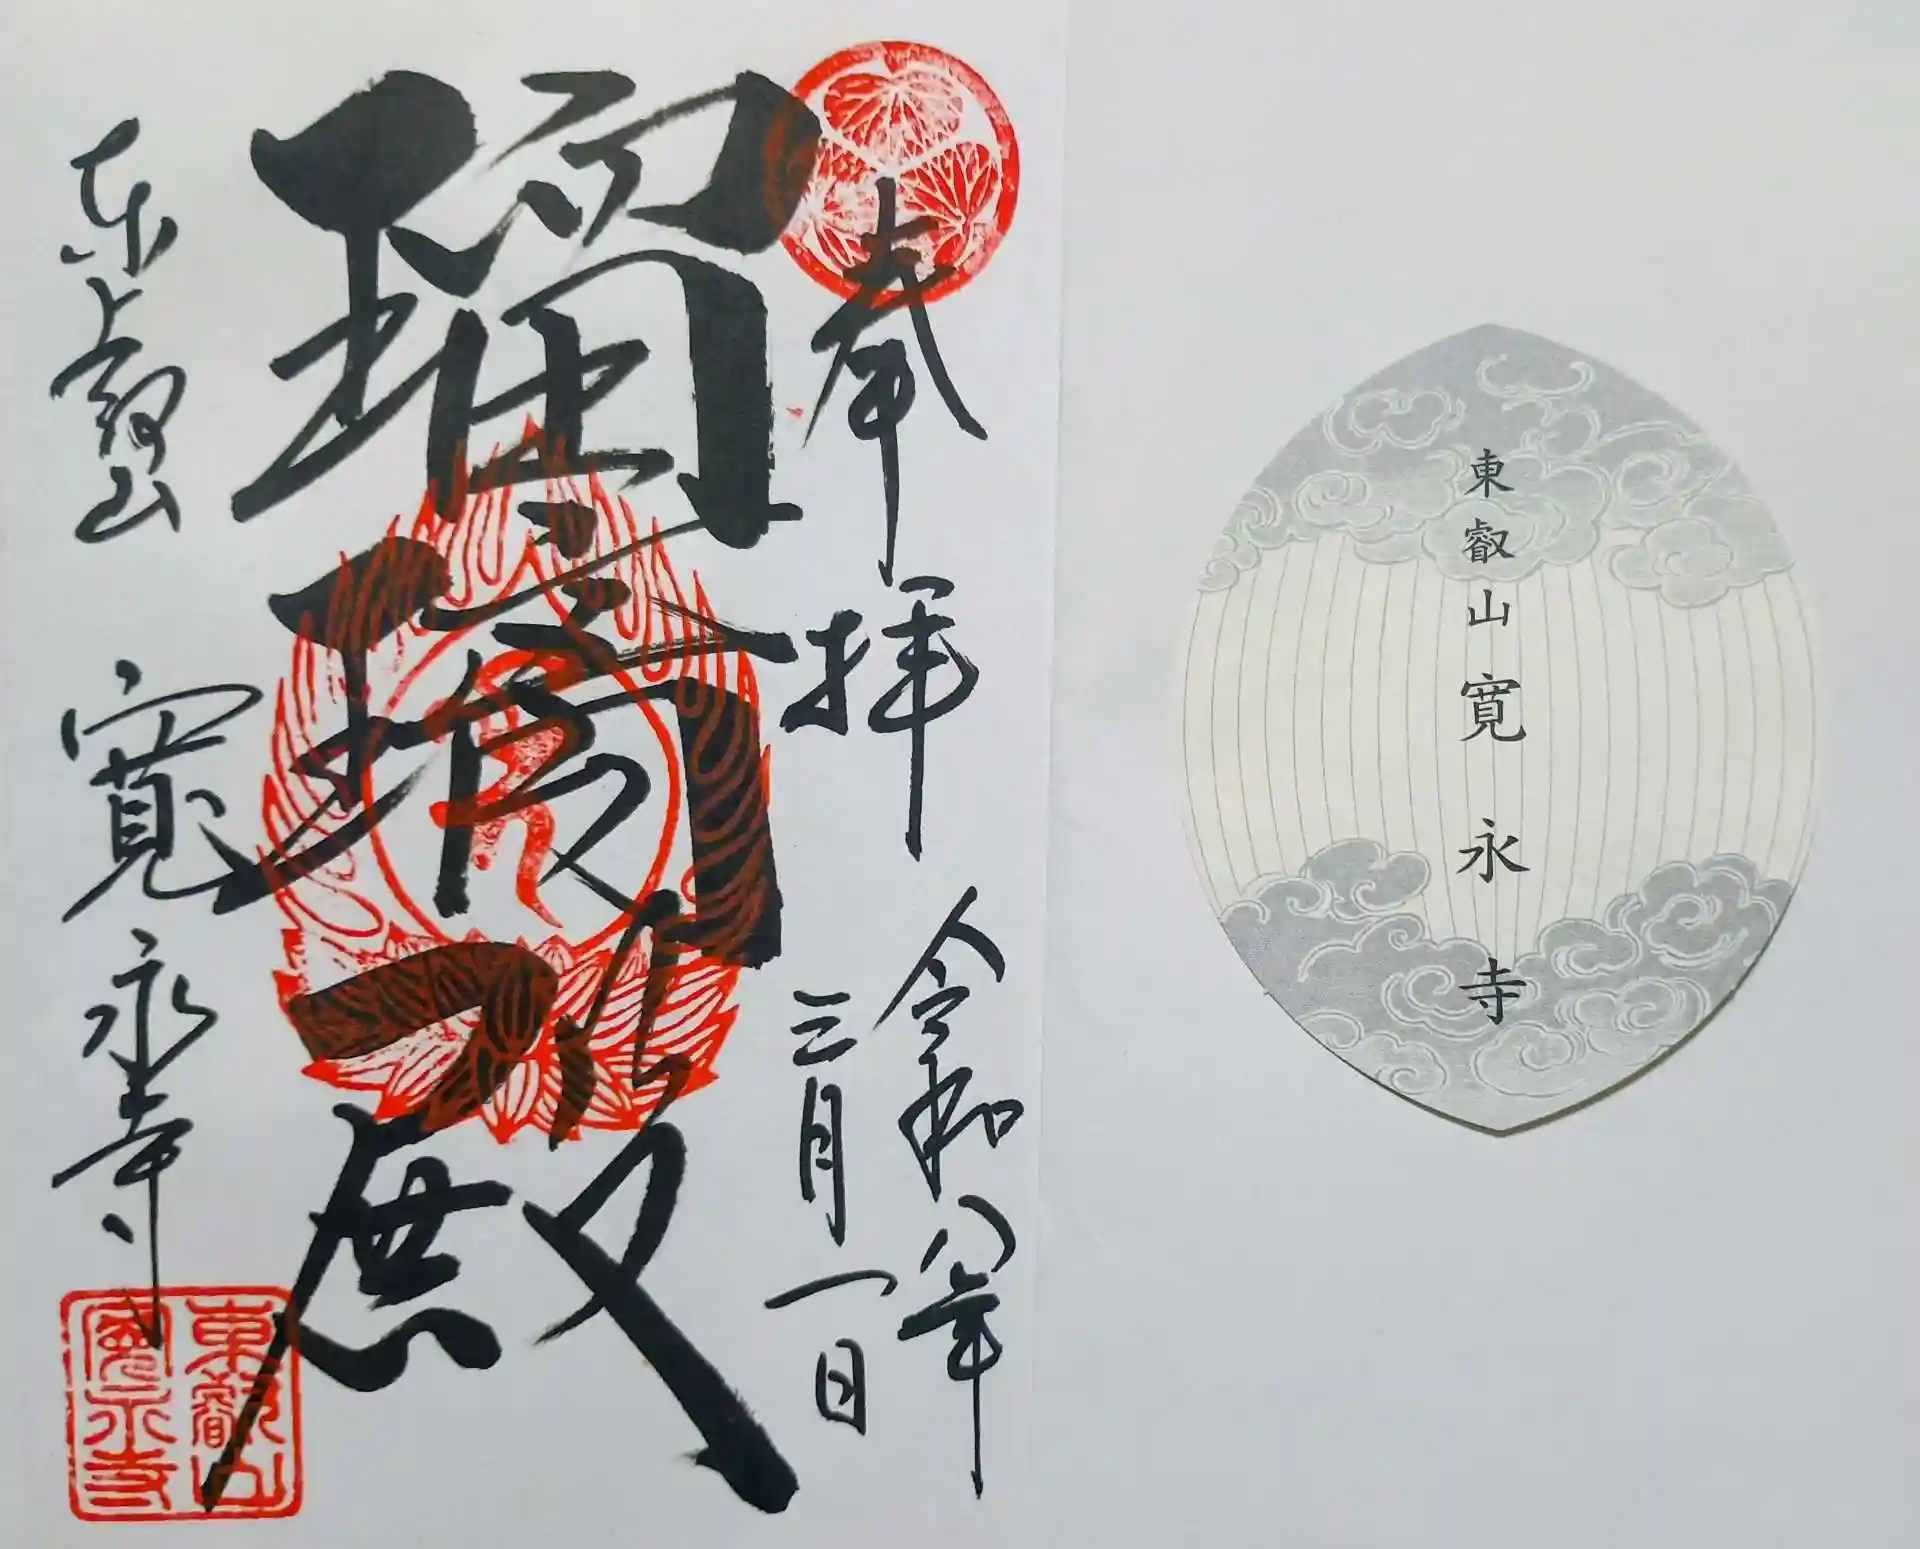 奉拝
令和八年
三月一日
瑠璃殿
東叡山
寛永寺
東叡山
寛永寺
東叡山寛永寺